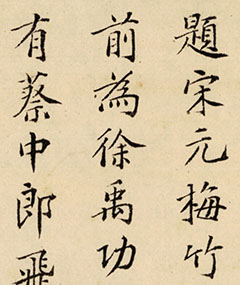 題宋元梅竹
前為徐禹功
有蔡中郎飛